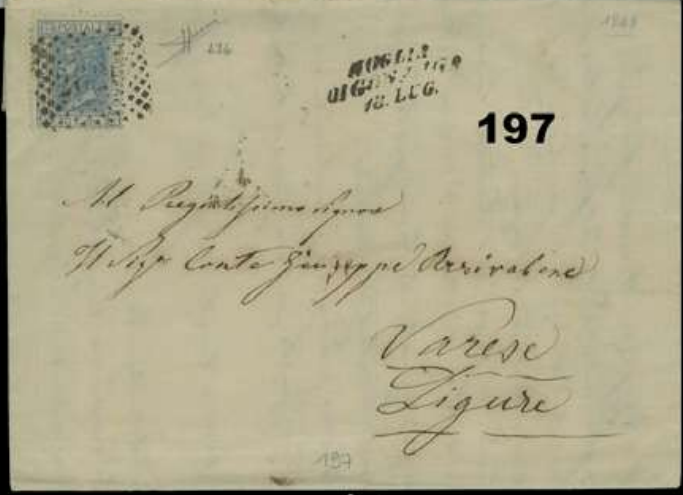 POSTALE
1868
MOGLIA
DI GONZAGA
18. LUG.
197
Al Pregiatissimo Signore
Il Sigr Conte Giuseppe Arrivabene
Varese
Ligure
197